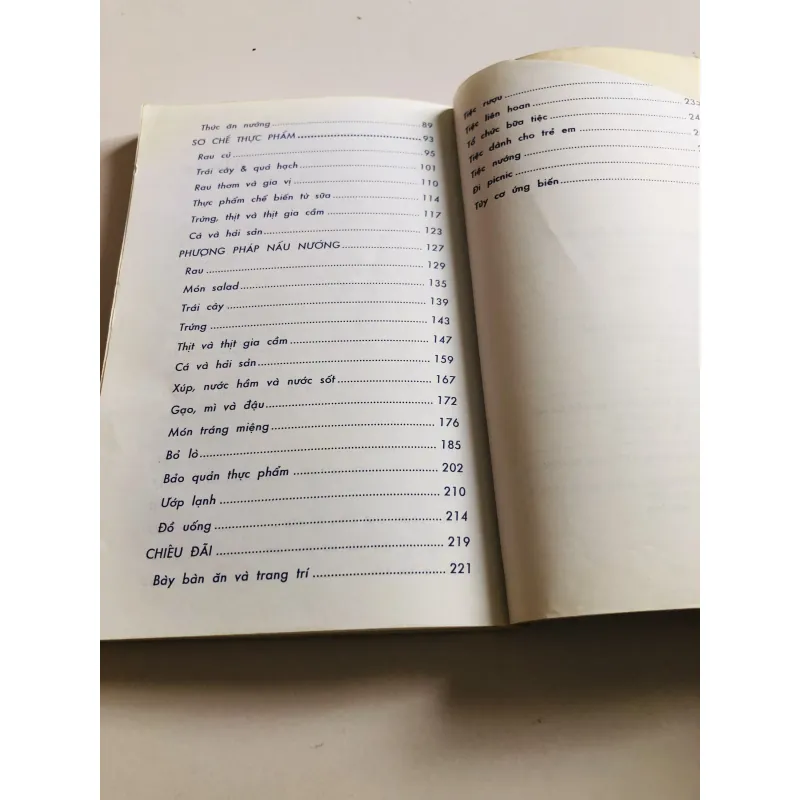 Thức ăn nướng 89
SƠ CHẾ THỰC PHẨM 93
Rau củ 95
Trái cây & quả hạch 101
Rau thơm và gia vị 110
Thực phẩm chế biến từ sữa 114
Trứng, thịt và thịt gia cầm 117
Cá và hải sản 123
PHƯƠNG PHÁP NẤU NƯỚNG 127
Rau 129
Món salad 135
Trái cây 139
Trứng 143
Thịt và thịt gia cầm 147
Cá và hải sản 159
Xúp, nước hầm và nước sốt 167
Gạo, mì và đậu 172
Món tráng miệng 176
Bỏ lò 185
Bảo quản thực phẩm 202
Ướp lạnh 210
Đồ uống 214
CHIÊU ĐÃI 219
Bày bàn ăn và trang trí 221
Tiệc rượu
Tiệc liên hoan 235
Tổ chức bữa tiệc
Tiệc dành cho trẻ em
Tiệc nướng
Đi picnic
Tùy cơ ứng biến